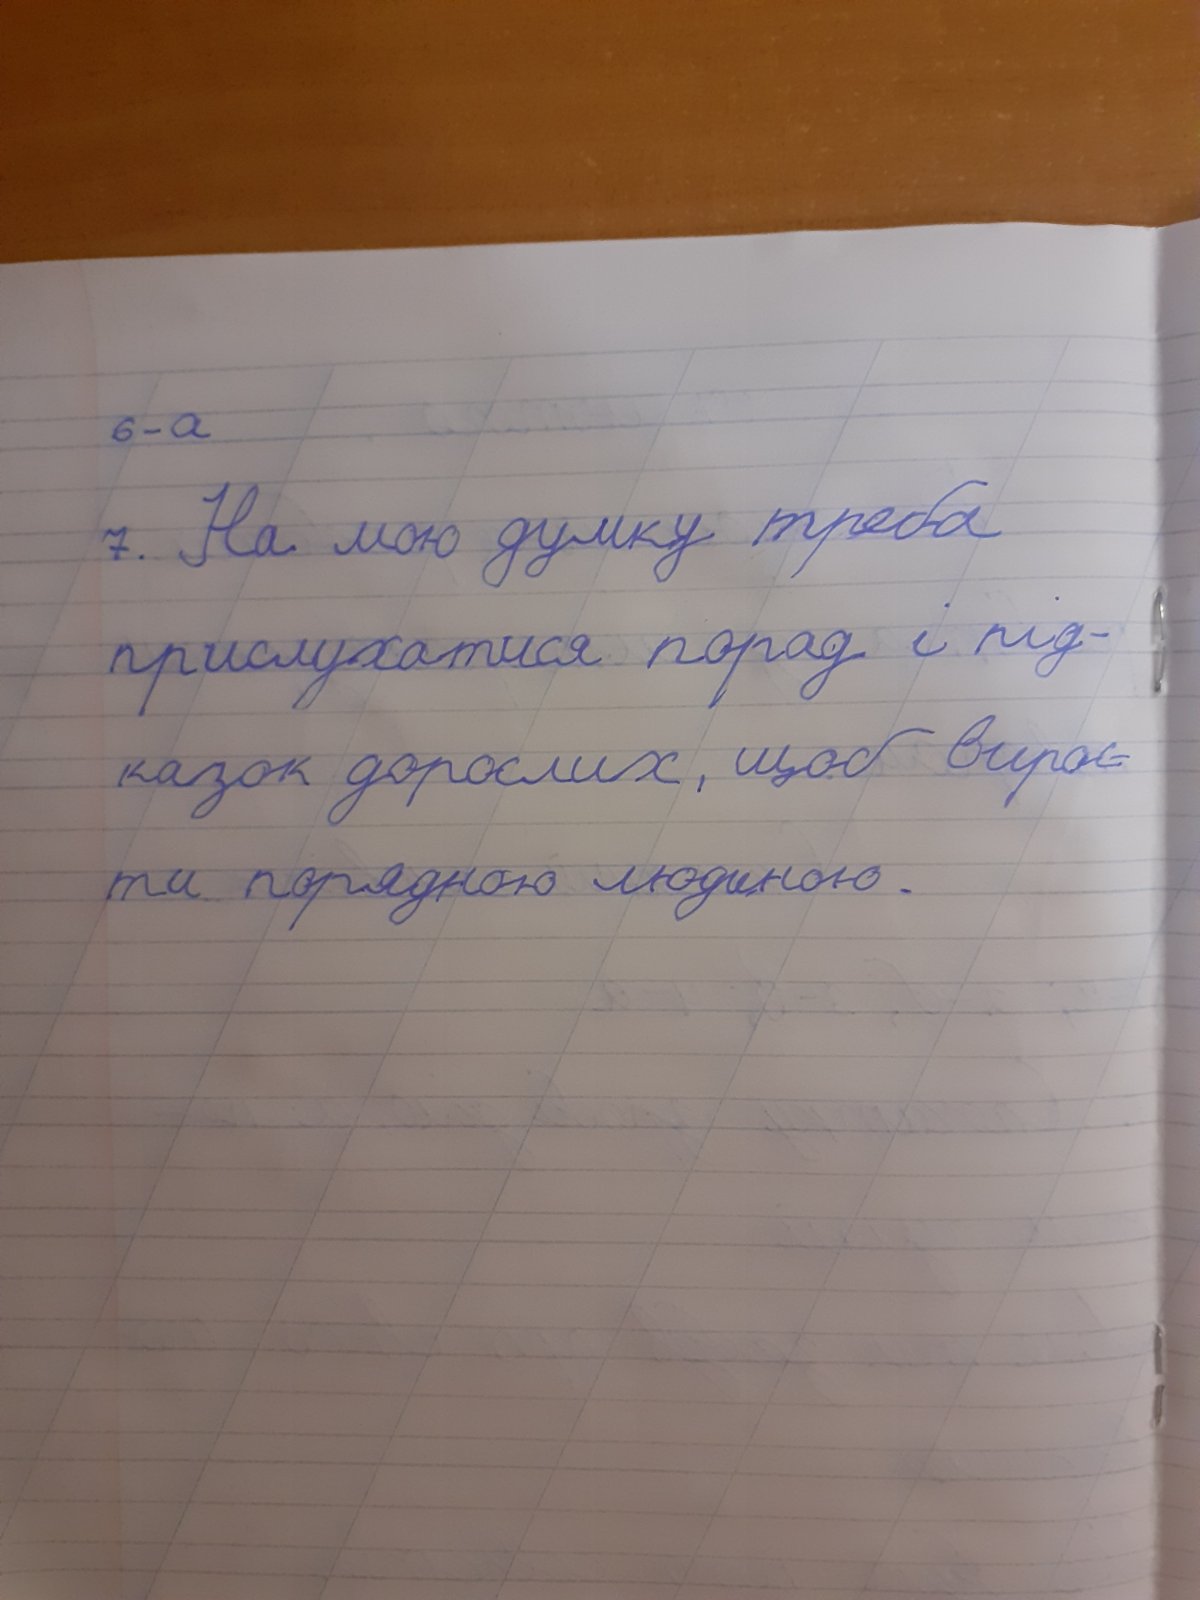 6-а
7. На мою думку треба
прислухатися порад і під-
казок дорослих, щоб вирос-
ти порядною людиною.